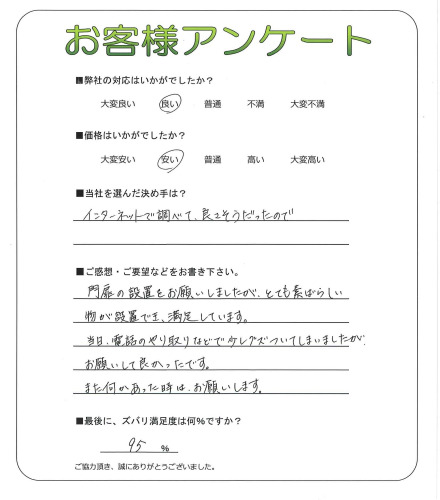 お客様アンケート
■弊社の対応はいかがでしたか?
大変良い 良い 普通 不満 大変不満
■価格はいかがでしたか?
大変安い 安い 普通 高い 大変高い
■当社を選んだ決め手は?
インターネットで調べて、良さそうだったので
■ご感想・ご要望などをお書き下さい。
門扉の設置をお願いしましたが、とても素ばらしい
物が設置でき、満足しています。
当日、電話のやり取りなどで少しグズついてしまいましたが、
お願いして良かったです。
また何かあった時は、お願いします。
■最後に、ズバリ満足度は何%ですか?
95 %
ご協力頂き、誠にありがとうございました。